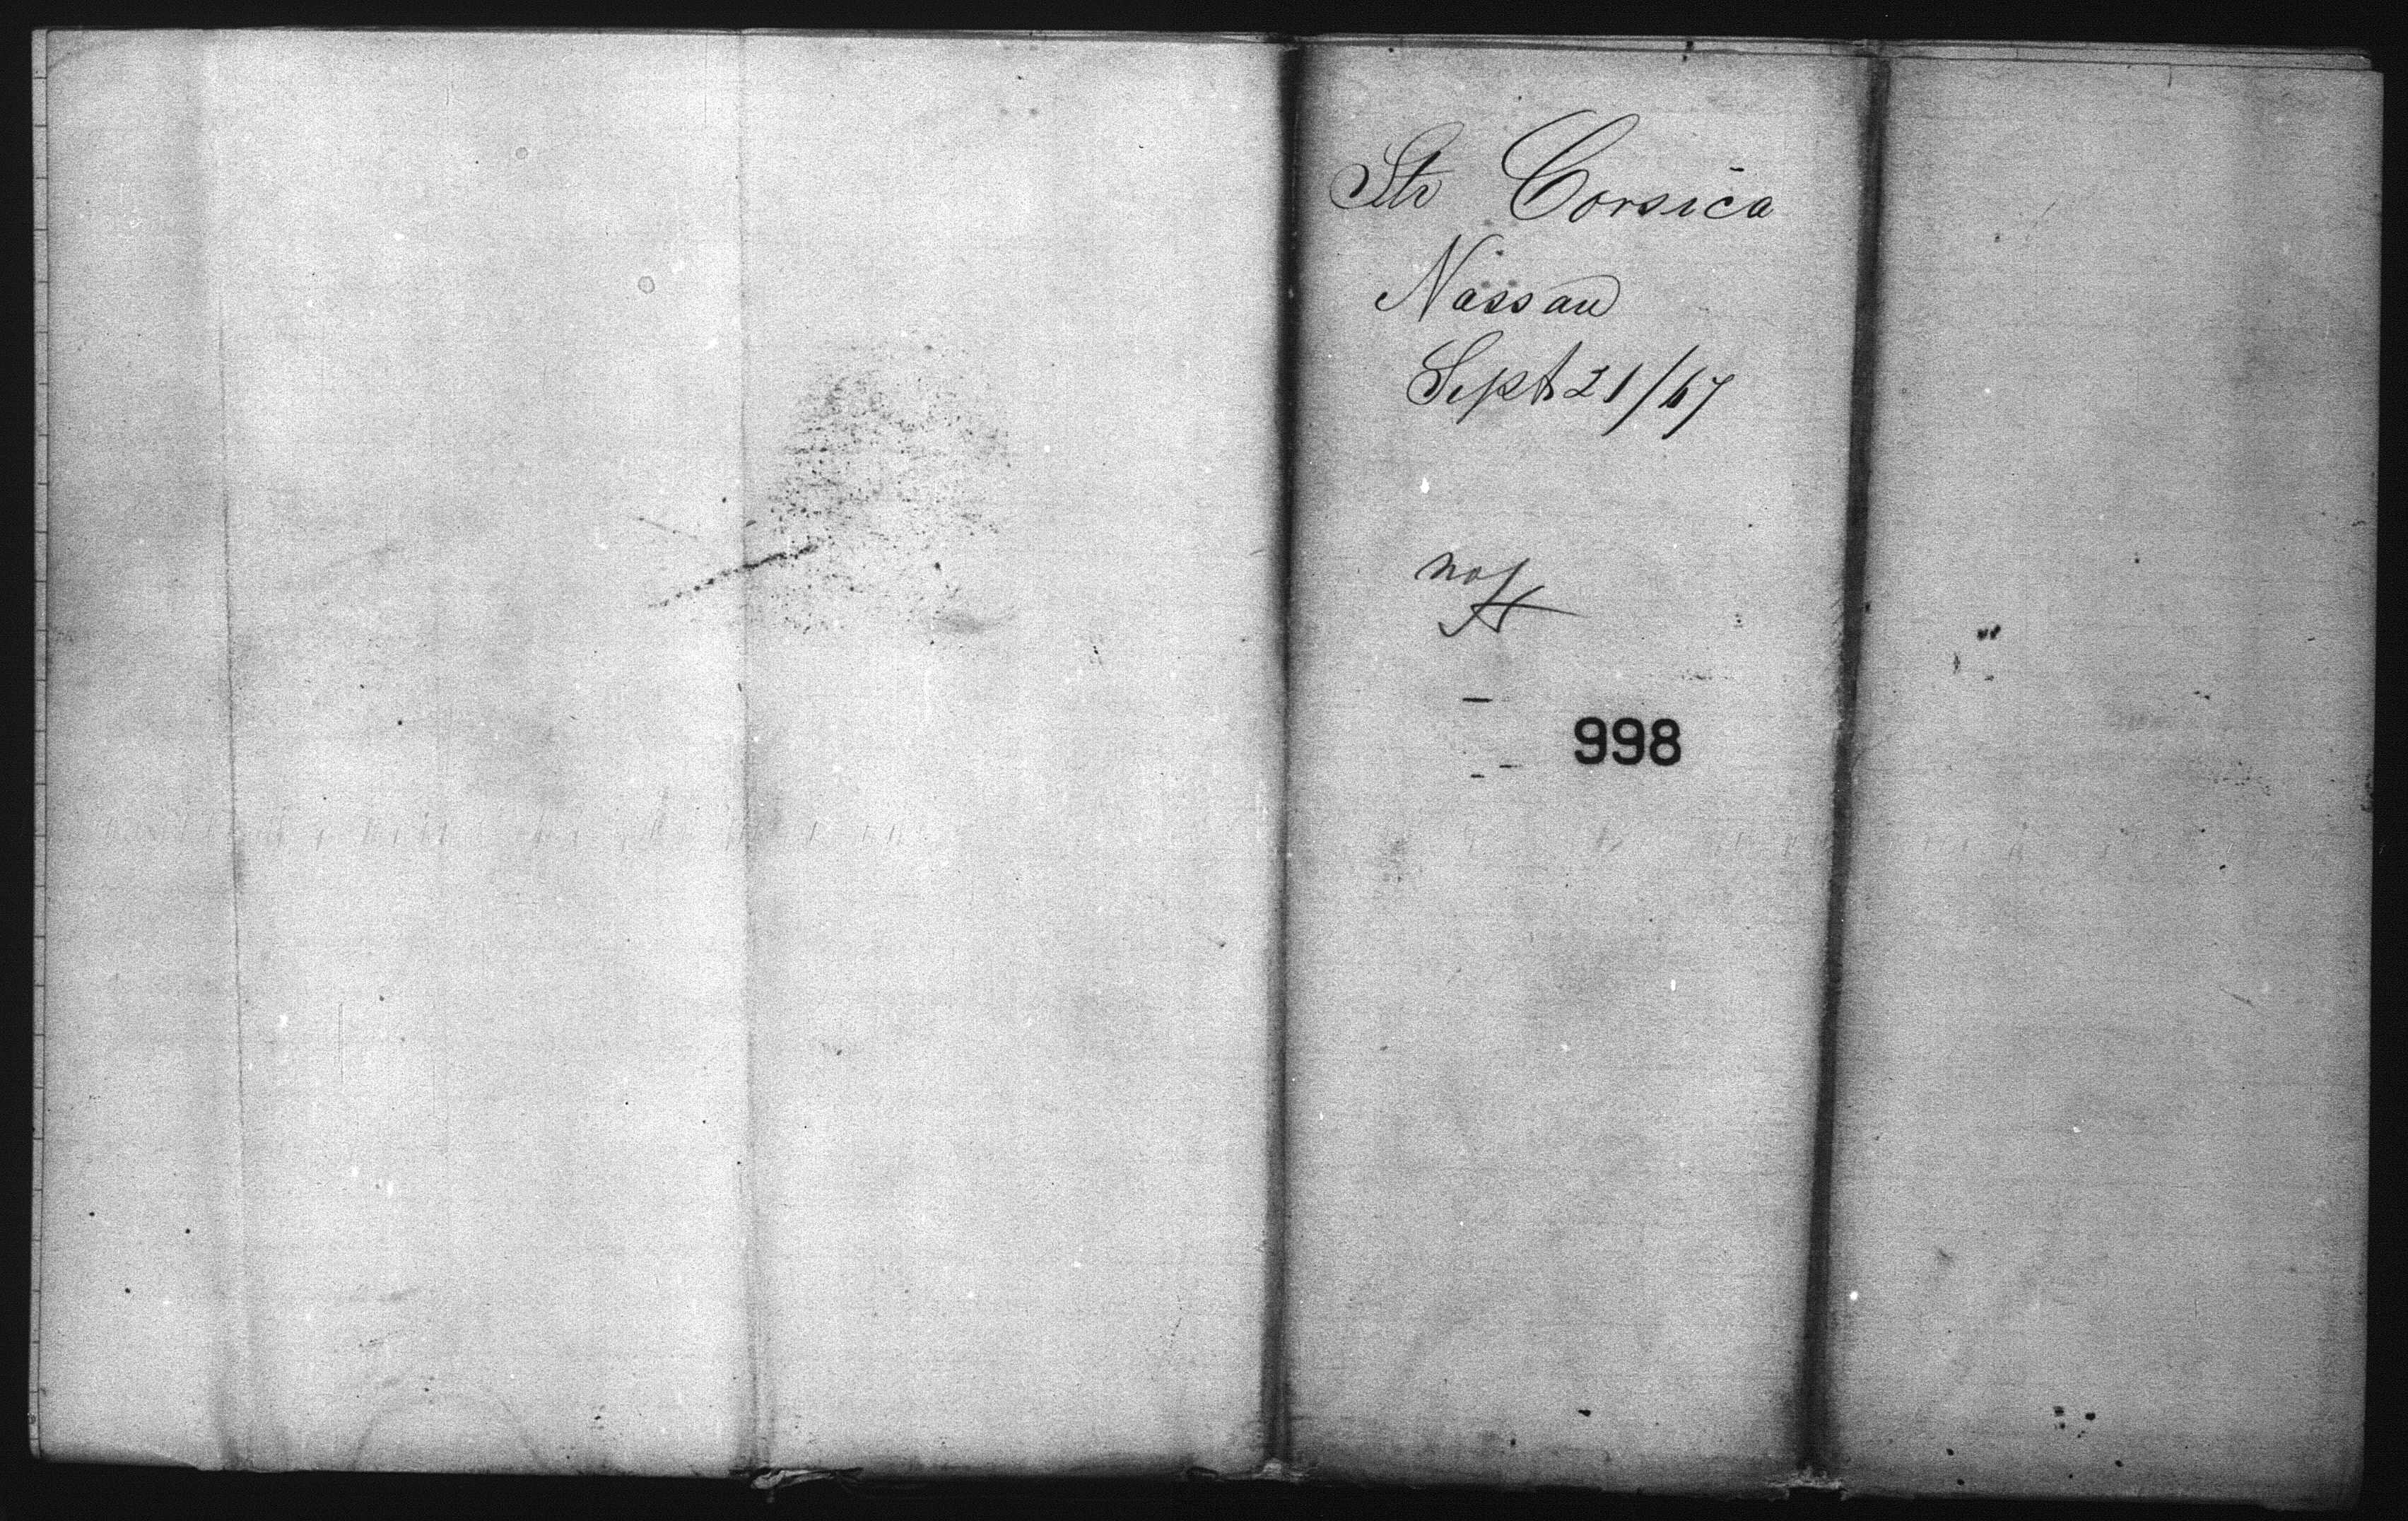 Str Corsica
Nassau
Sept 21/67
998